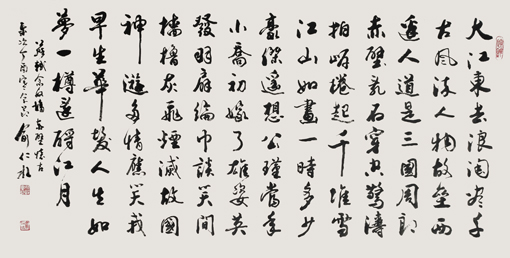 大江東去浪淘盡千
古風流人物故壘西
邊人道是三國周郎
赤壁亂石穿空驚濤
拍岸捲起千堆雪
江山如畫一時多少
豪傑遙想公瑾當年
小喬初嫁了雄姿英
發羽扇綸巾談笑間
檣櫓灰飛煙滅故國
神遊多情應笑我
早生華髮人生如
夢一樽還酹江月
蘇軾念奴嬌赤壁懷古